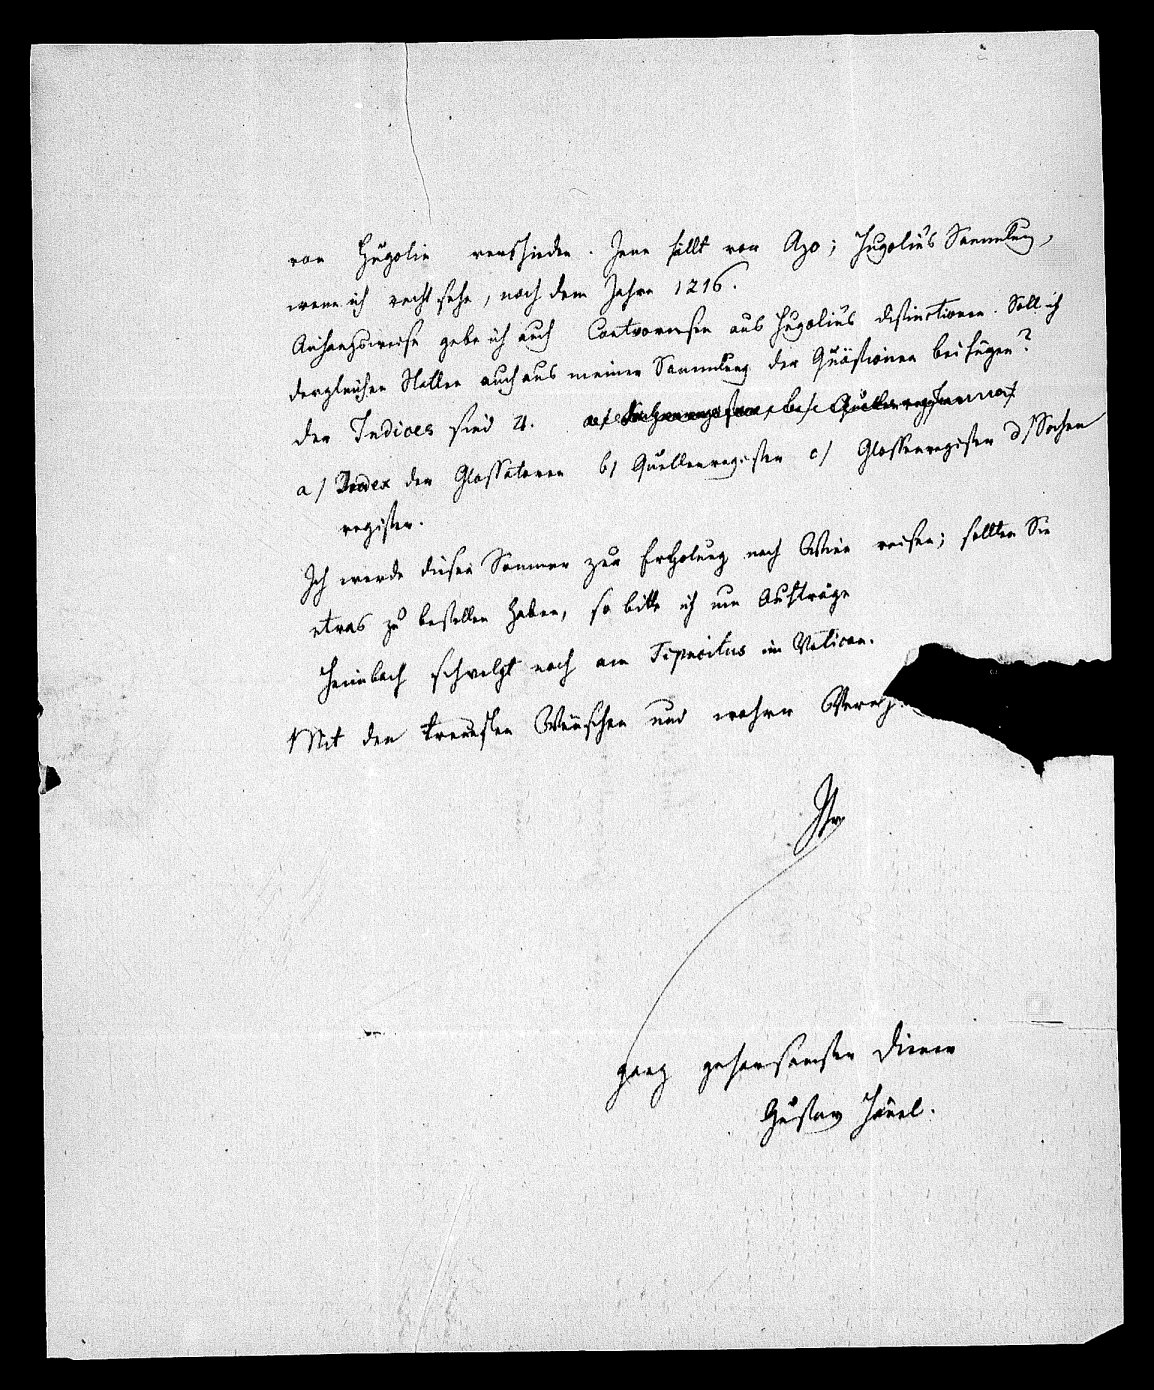 von Hugolin verschieden. Jene fällt vor Azo; Hugolins Sammlung,
wenn ich recht sehe, nach dem Jahre 1216.
Anhangsweise gebe ich auch Controversen aus Hugolins distinctionen. Soll ich
dergleichen Stellen auch aus meiner Sammlung der Quästionen beifügen?
der Indices sind 4. a/ Sachenregister, b/ Quellenregister
a/ Index der Glossatoren b/ Quellenregister c/ Glossenregister d/ Sachen
register.
Ich werde diesen Sommer zur Erholung nach Wien reisen; sollten Sie
etwas zu bestellen haben, so bitte ich um Aufträge
Heimbach schwelgt noch am Tipucitus im Vatican.
Mit den treuesten Wünschen und wahrer Vereh
Ihr
ganz gehorsamster Diener
Gustav Hänel.